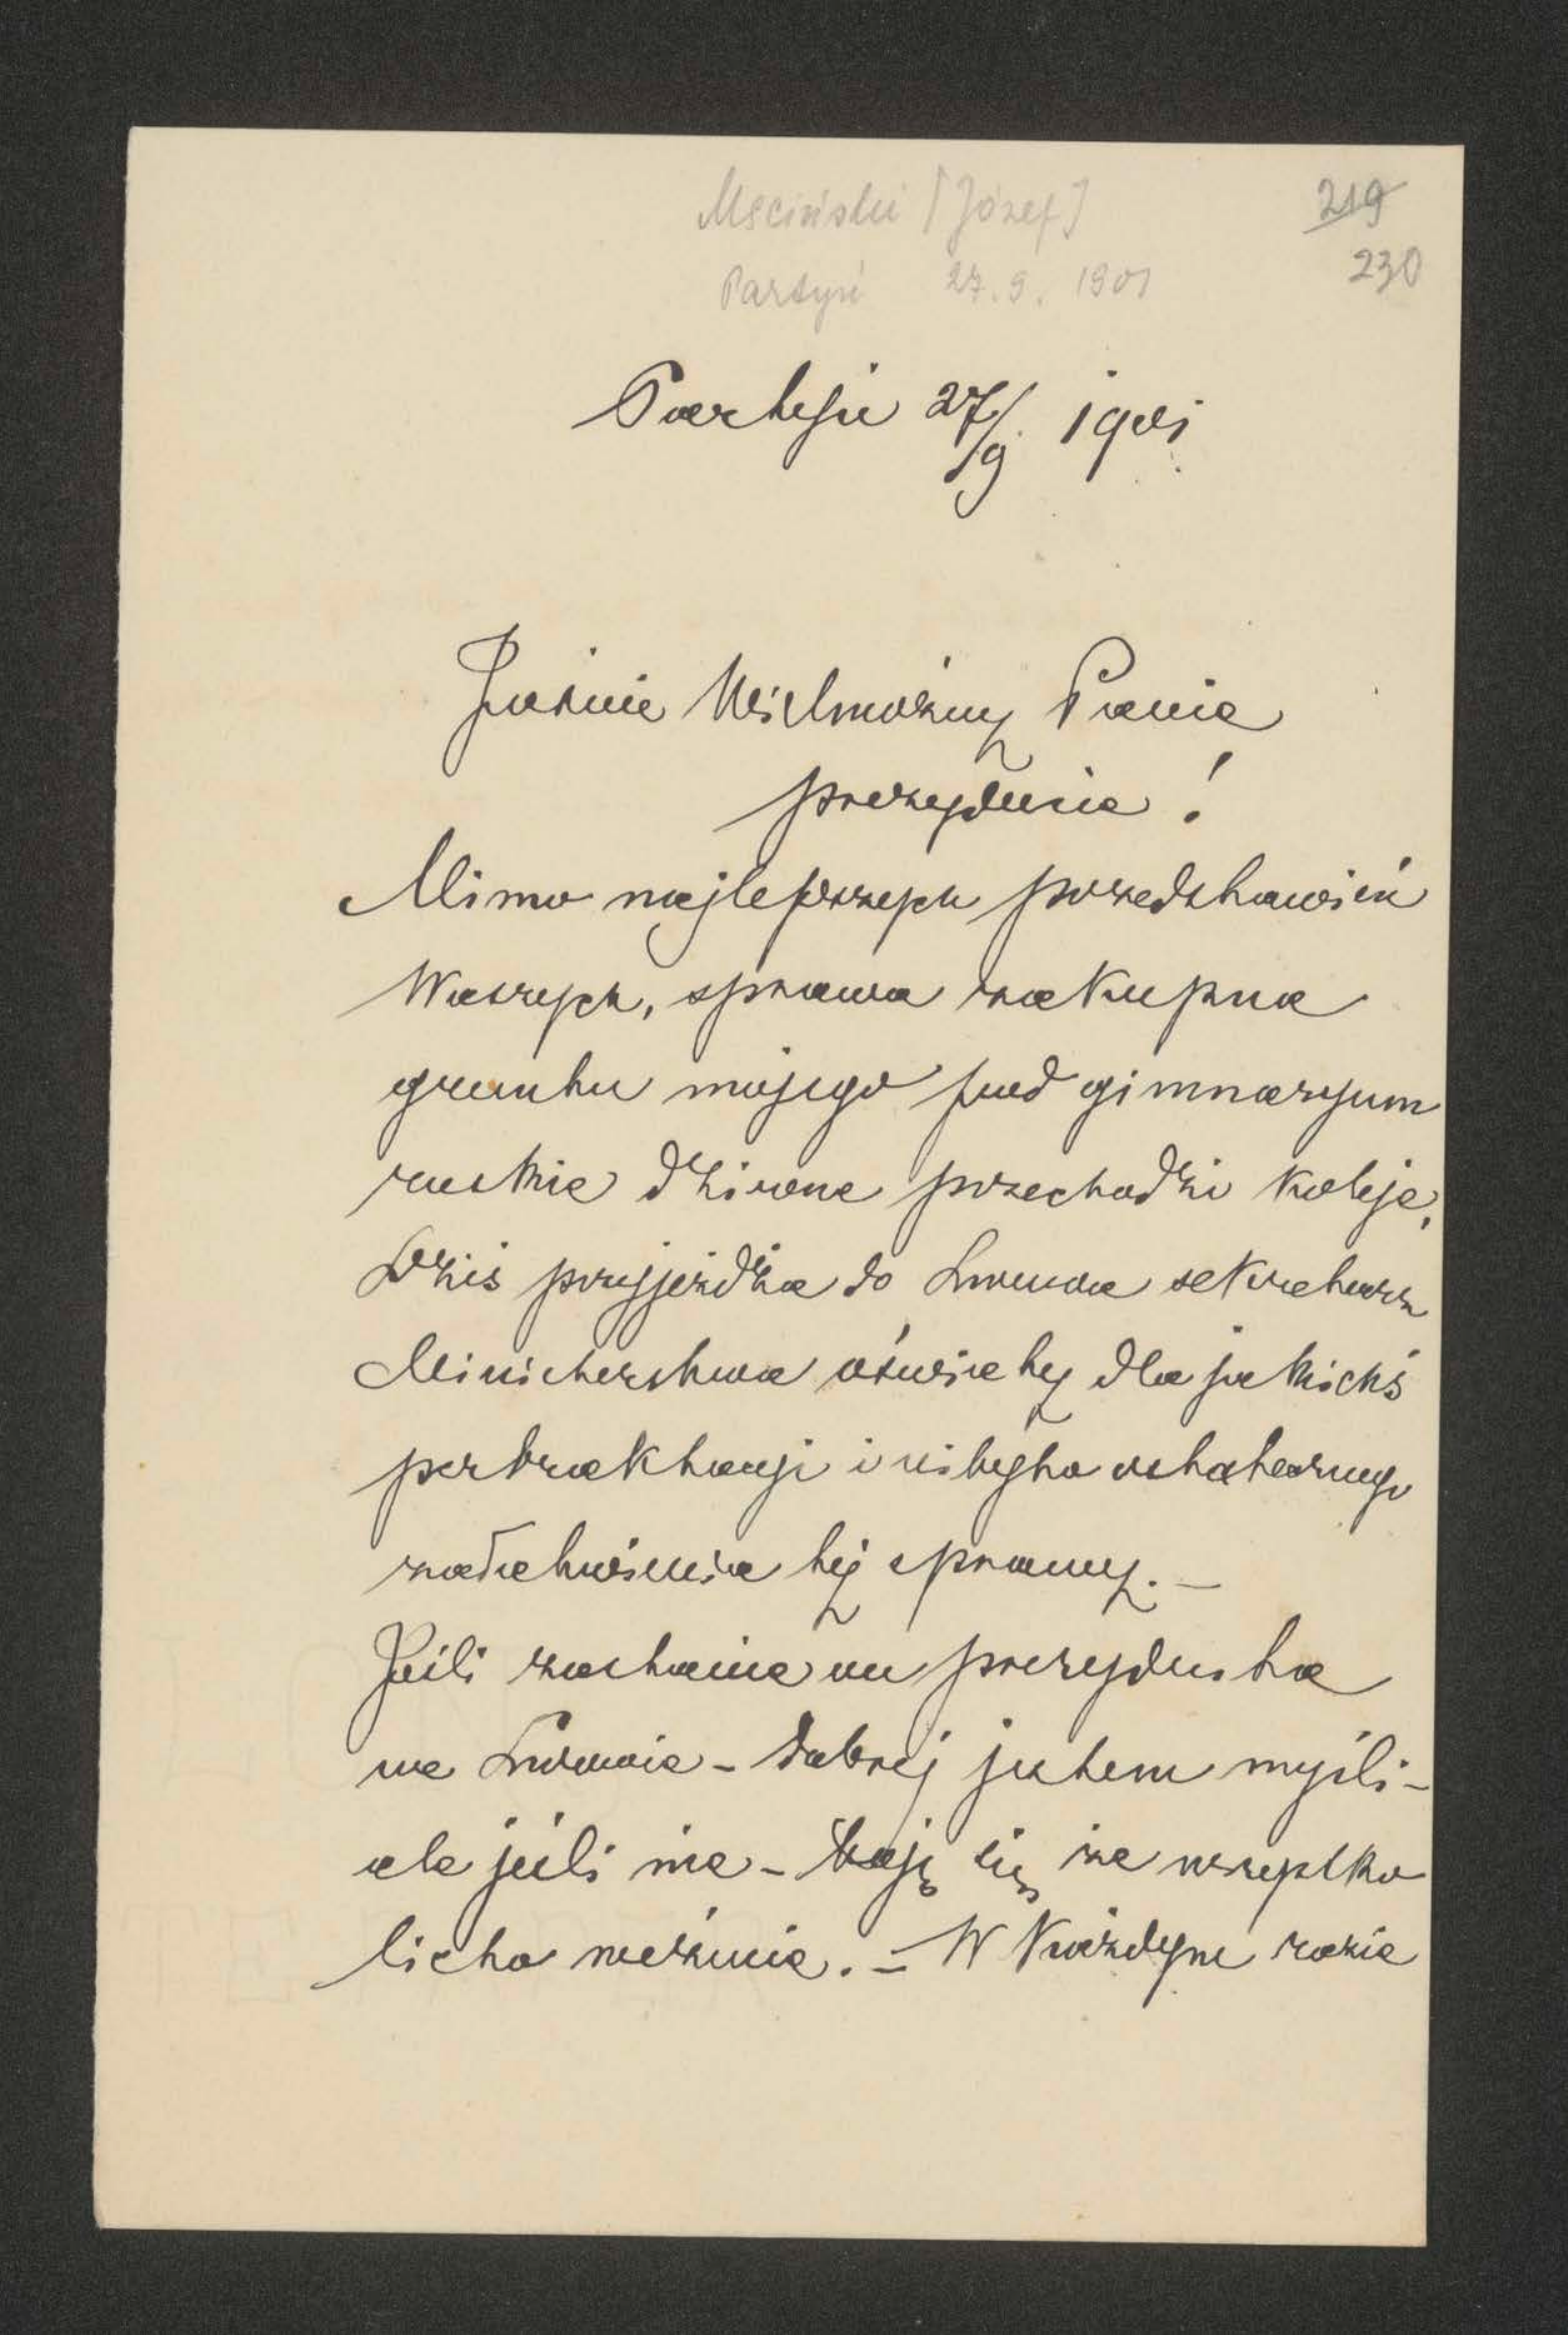 Mściński [Józef]
219
Partyń 27.9.1901
230
Partyń 27/9. 1901
Jaśnie Wielmożny Panie
prezydencie!
Mimo najlepszych przedstawień
Waszych, sprawa zakupna
gruntu mojego pod gimnazyum
ruskie dziwne przechodzi koleje,
Dziś przyjeżdża do Lwowa sekretarz
Ministerstwa oświaty dla jakichś
pertraktacyi i niby to ostatecznego
załatwienia tej sprawy. –
Jeśli zastanie on prezydenta
we Lwowie – dobrej jestem myśli –
ale jeśli nie – boję się że wszystko
licho weźmie. – W każdym razie